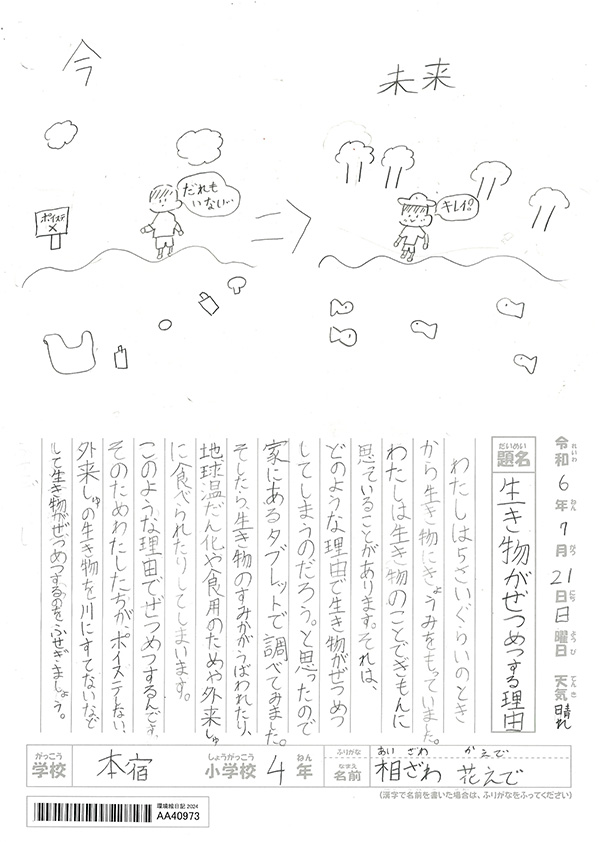 今
未来
だれも
いない…
ポイステ
×
キレイ!!
令和6年7月21日日曜日 天気晴れ
れいわ ねん がつ にち ようび てんき
だいめい
題名
生き物がぜつめつする理由
わたしは5さいぐらいのとき
から生き物にきょうみをもっていました。
わたしは生き物のことでぎもんに
思っていることがあります。それは、
どのような理由で生き物がぜつめつ
してしまうのだろう。と思ったので
家にあるタブレットで調べてみました。
そしたら、生き物のすみかがうばわれたり、
地球温だん化や食用のためや外来しゅ
に食べられたりしてしまいます。
このような理由でぜつめつするんです。
そのためわたしたちが、ポイステしない、
外来しゅの生き物を川にすてないなど
して生き物がぜつめつするのをふせぎましょう。
がっこう
学校
本宿
しょうがっこう
小学校
4
ねん
年
ふりがな
あい ざわ かえで
なまえ
名前
相ざわ 花えで
(漢字で名前を書いた場合は、ふりがなをふってください)
環境絵日記 2024
AA40973